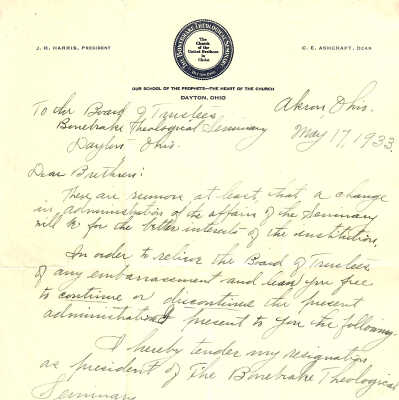 J. R. HARRIS, PRESIDENT
THE BONEBRAKE THEOLOGICAL SEMINARY
The
Church
of the
United Brethren
in
Christ
DAYTON, OHIO
C. E. ASHCRAFT, DEAN
OUR SCHOOL OF THE PROPHETS—THE HEART OF THE CHURCH
DAYTON, OHIO
Akron Ohio.
May 17, 1933.
To the Board of Trustees,
Bonebrake Theological Seminary
Dayton Ohio.
Dear Brethren:
There are rumors at least, that a change
in administration of the affairs of the Seminary
will be for the better interests of the institution.
In order to relieve the Board of Trustees
of any embarrassment and leave you free
to continue or discontinue the present
administration I present to you the following
I hereby tender my resignation
as president of The Bonebrake Theological
Seminary